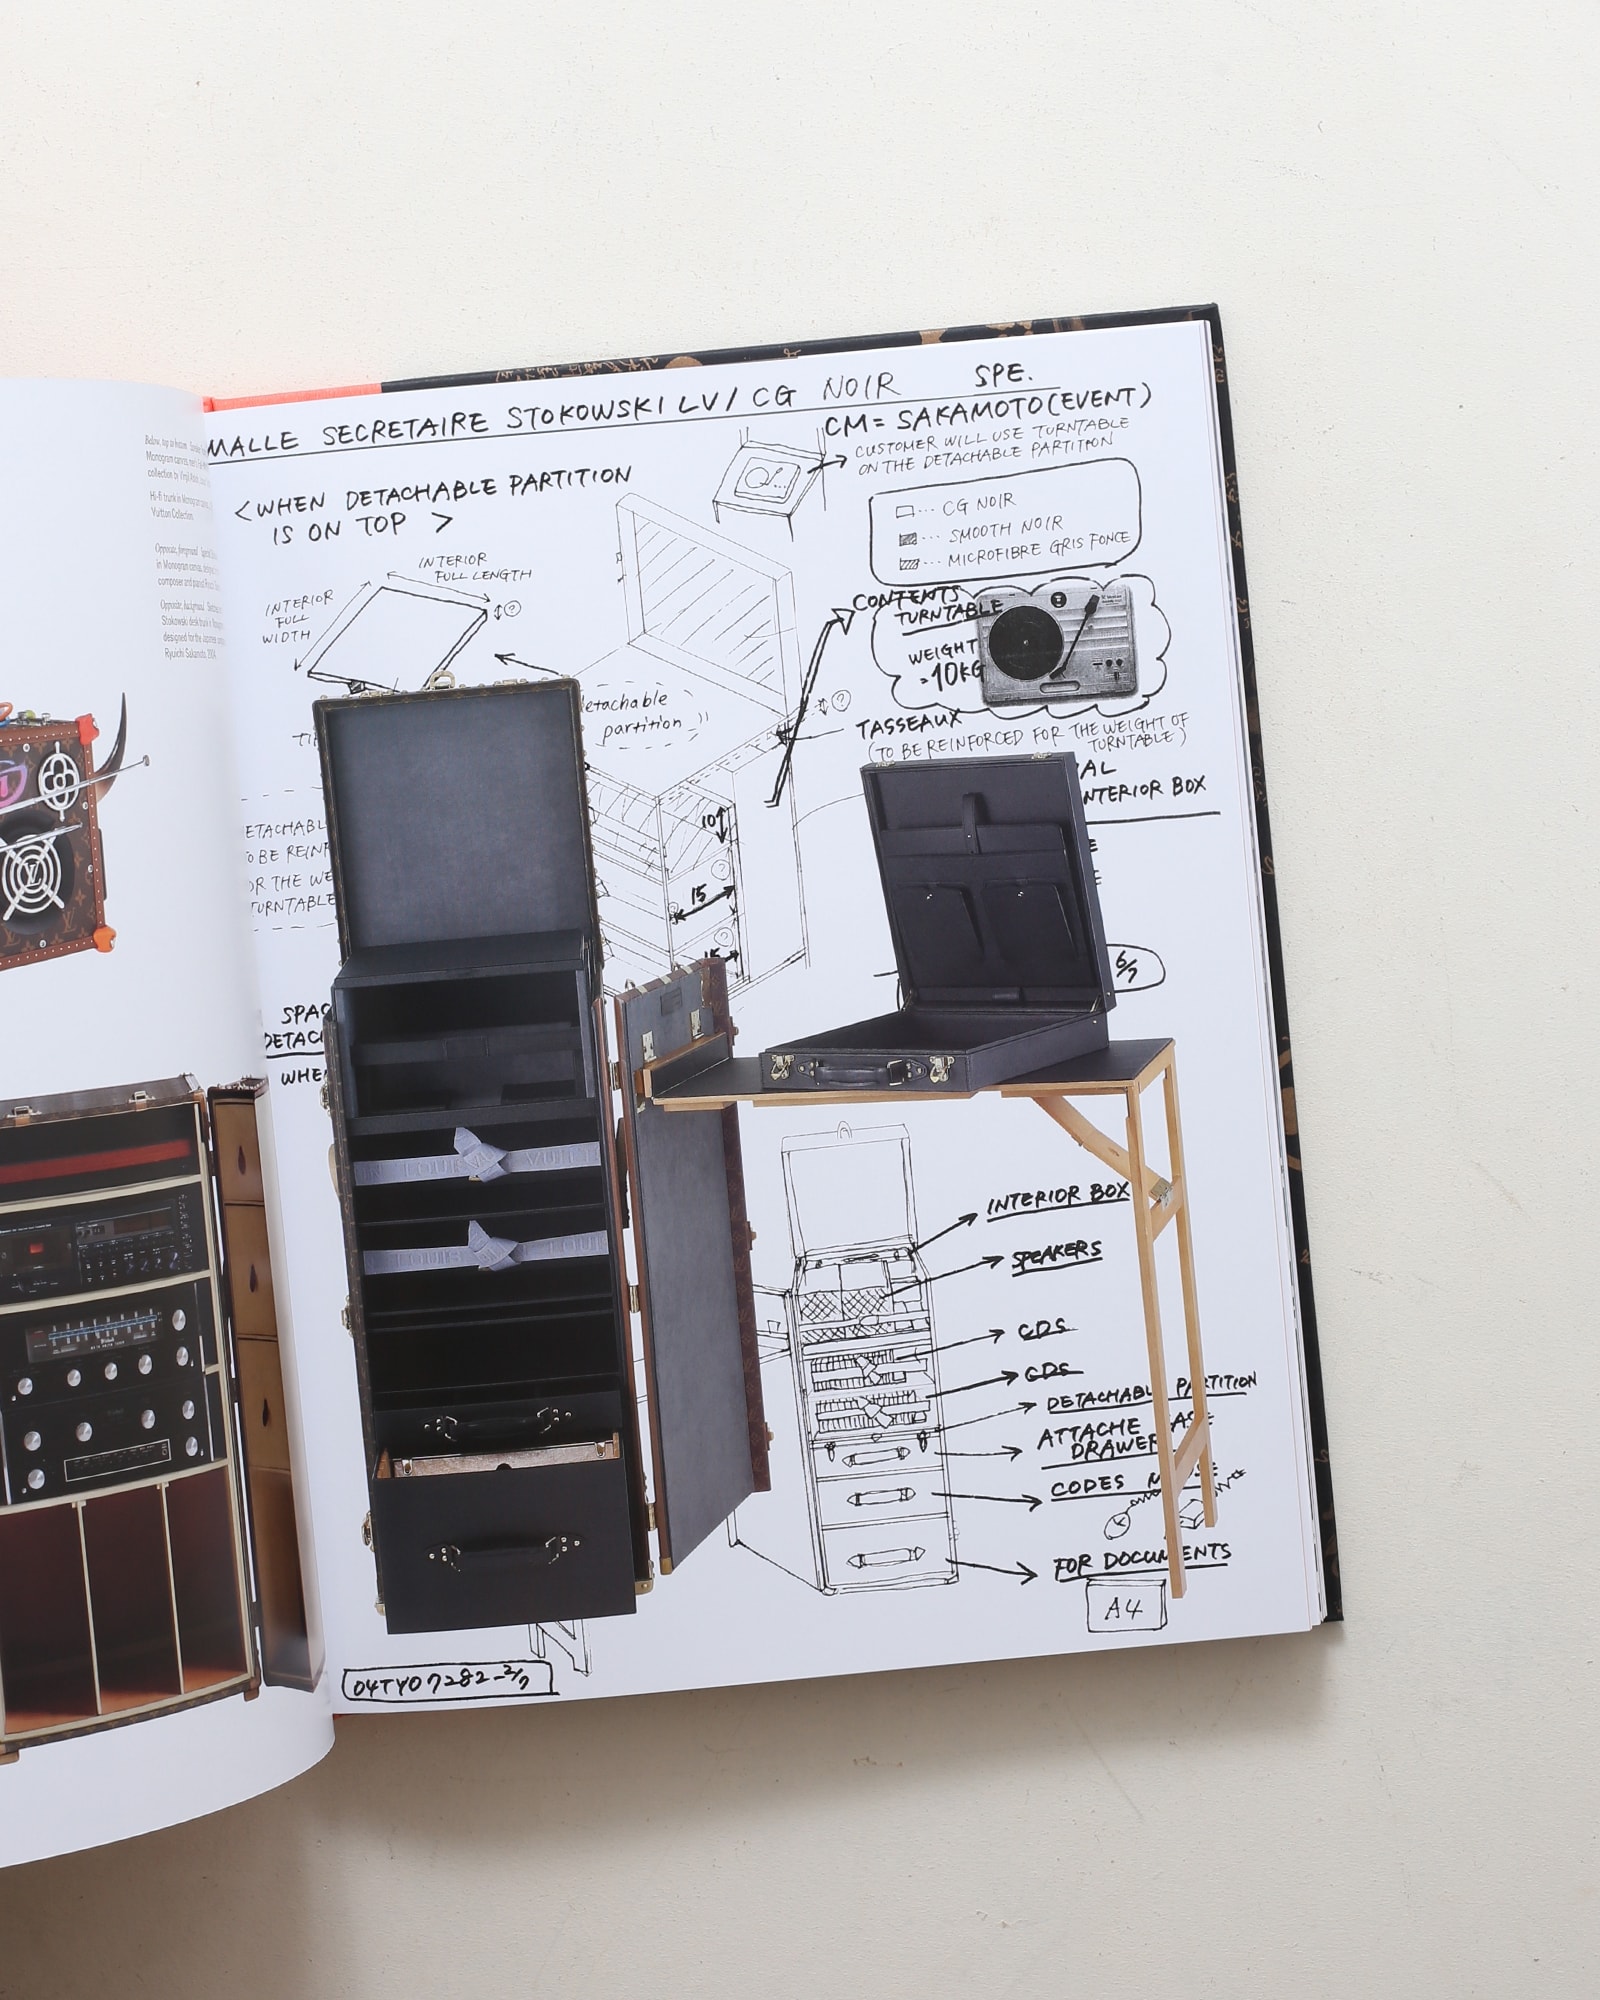 Below, top to bottom
Monogram canvas,
collection by Virgil
Hi-fi trunk in Monogram canvas,
Vuitton Collection
Opposite, foreground
in Monogram canvas,
composer and pianist
Opposite, background
Stokowski desk trunk in
designed for the Japanese
Ryuichi Sakamoto, 2004.
MALLE SECRETAIRE STOKOWSKI LV/ CG NOIR SPE.
CM= SAKAMOTO(EVENT)
CUSTOMER WILL USE TURNTABLE
ON THE DETACHABLE PARTITION
<WHEN DETACHABLE PARTITION
IS ON TOP >
... CG NOIR
... SMOOTH NOIR
... MICROFIBRE GRIS FONCE
INTERIOR
FULL LENGTH
INTERIOR
FULL
WIDTH
?
CONTENTS
TURNTABLE
WEIGHT
=10KG
etachable
partition
?
TASSEAUX
(TO BE REINFORCED FOR THE WEIGHT OF
TURNTABLE)
AL
NTERIOR BOX
ETACHABL
O BE REINF
OR THE WE
TURNTABLE
10
?
15
?
?
15
6/7
SPAC
DETAC
WHEN
LOUIS VUITT
LOUI
LOUI
INTERIOR BOX
SPEAKERS
CDS
CDS
DETACHABL PARTITION
ATTACHE ASE
DRAWER
CODES
FOR DOCUMENTS
A4
04TY07282-2/7